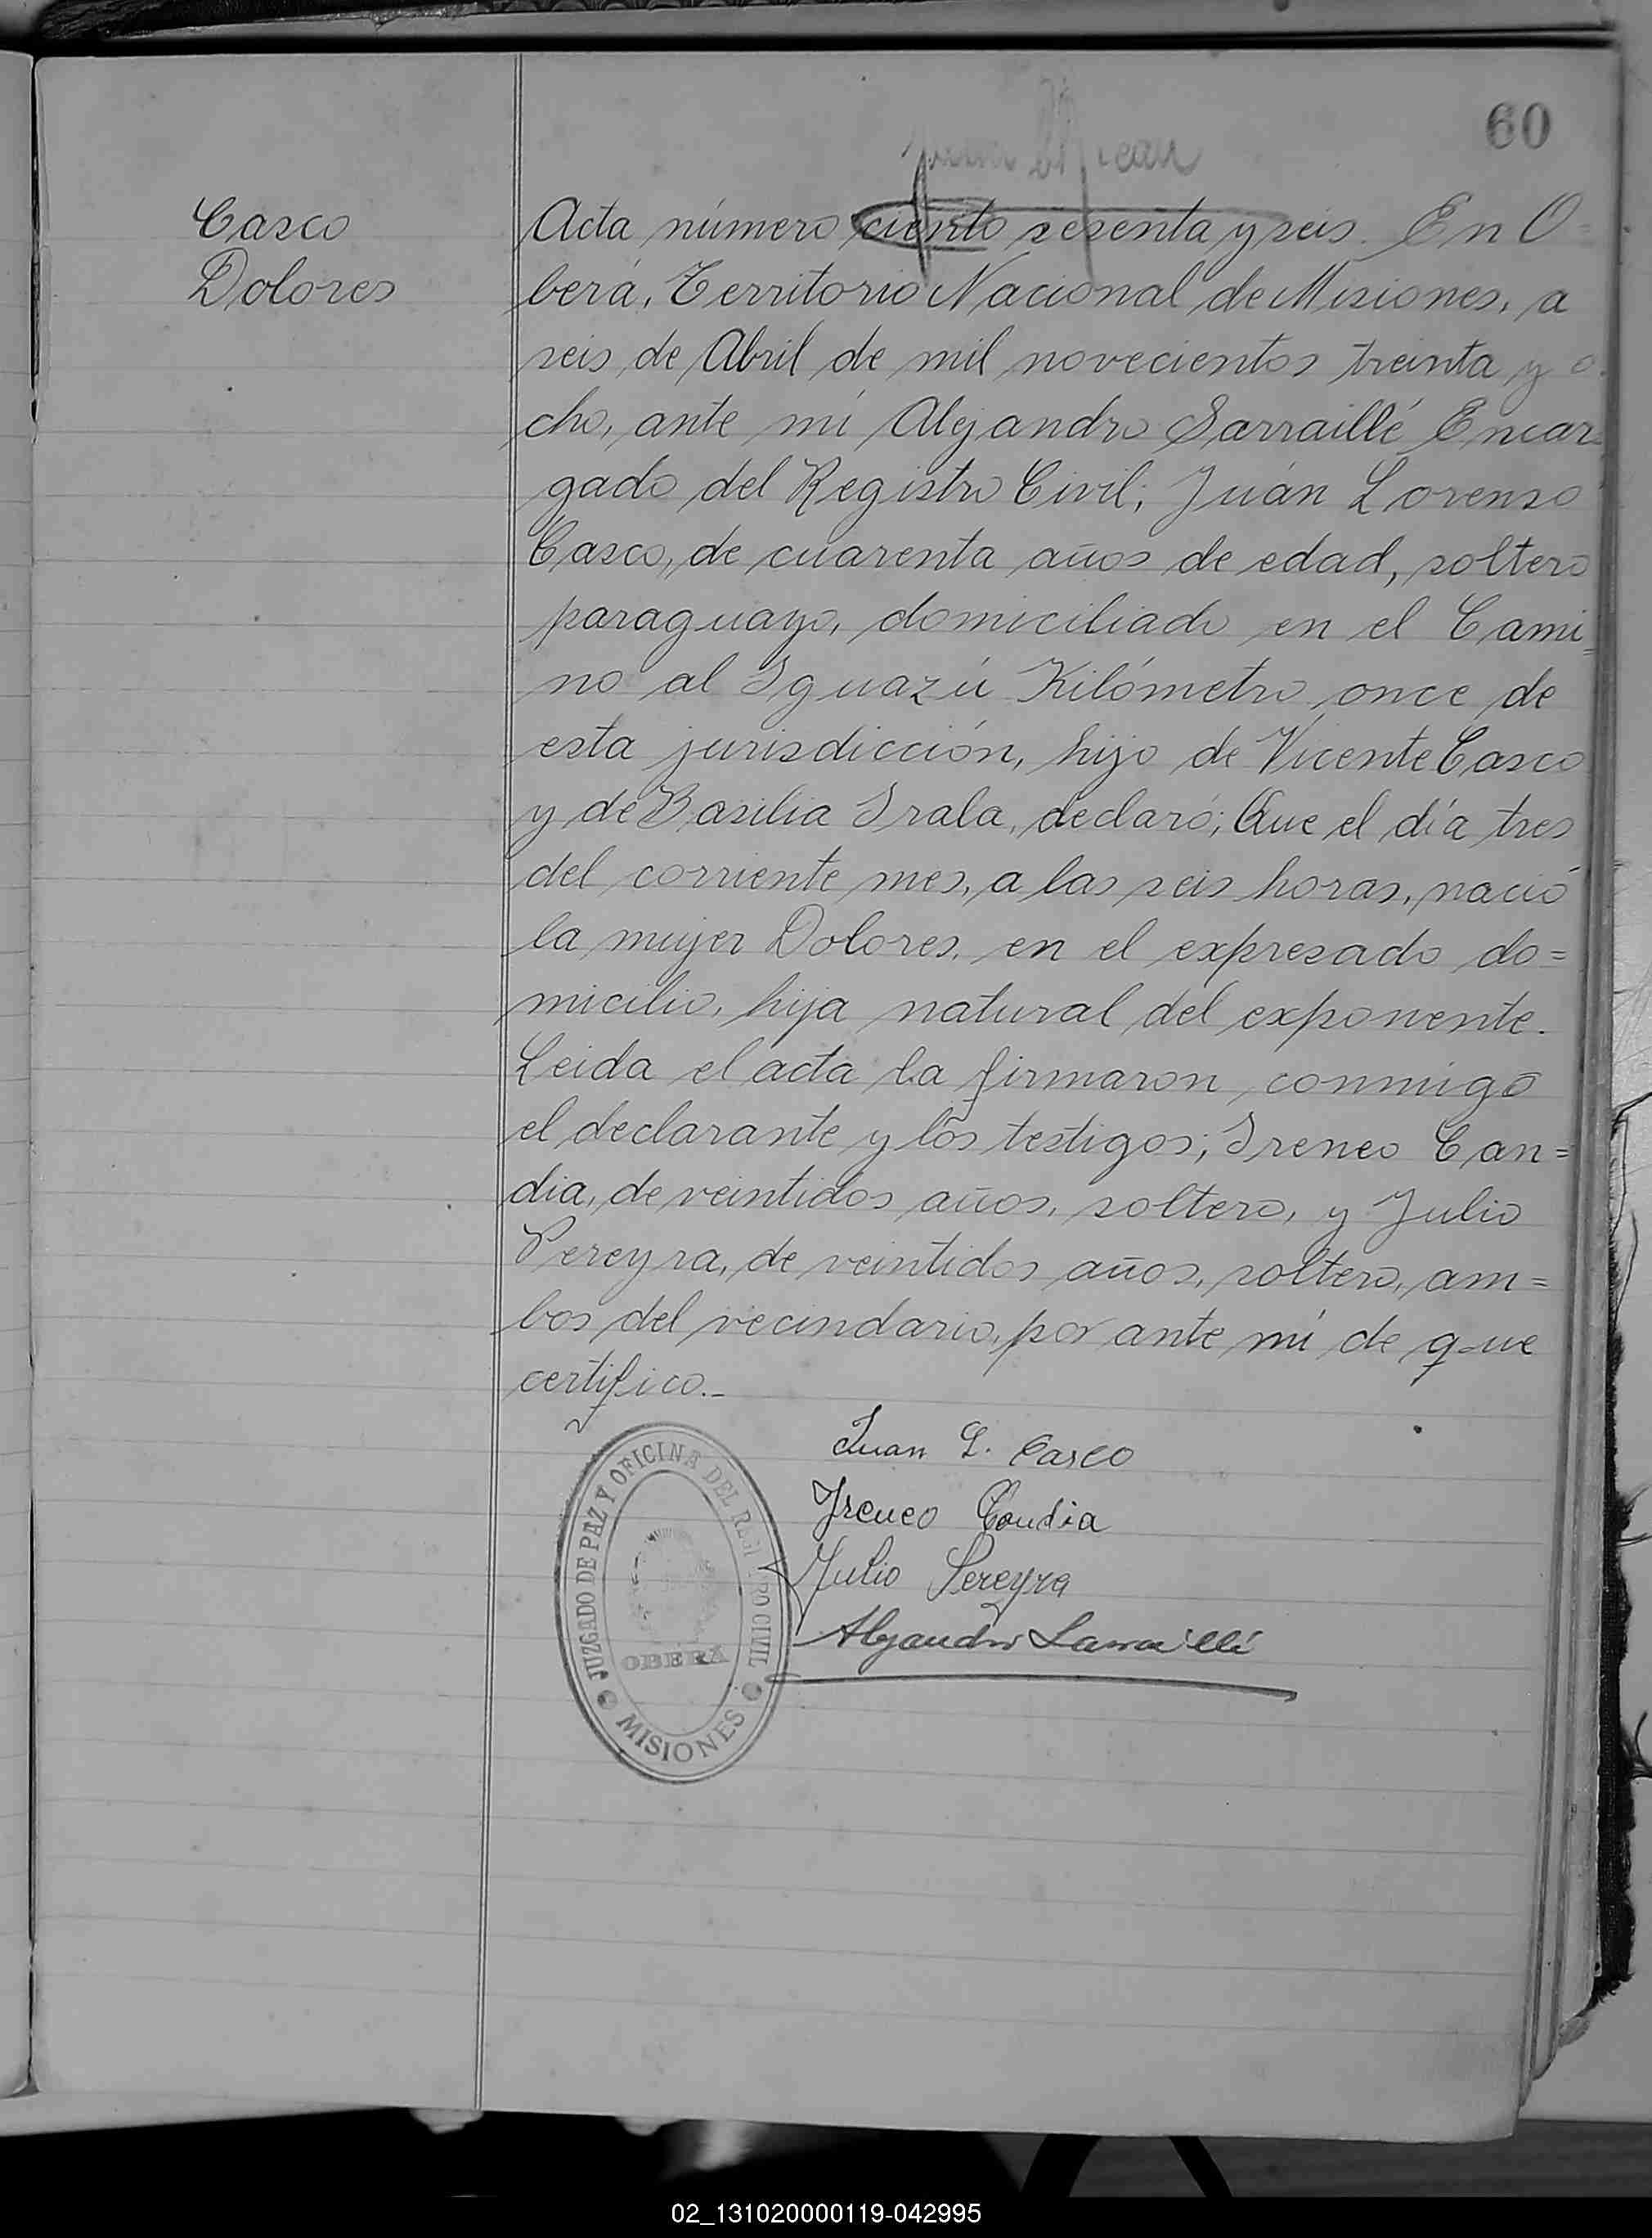 60
Casco
Dolores
Acta número ciento sesenta y seis. En O=
berá, Territorio Nacional de Misiones, a
seis de Abril de mil novecientos treinta y o
cho, ante mí Alejandro Sarraillé Encar=
gado del Registro Civil; Juán Lorenso
Casco, de cuarenta años de edad, soltero
paraguayo, domiciliado en el Cami=
no al Iguazú Kilómetro once de
esta jurisdicción, hijo de Vicente Casco
y de Basilia Irala, declaró; Que el día tres
del corriente mes, a las seis horas, nació
la mujer Dolores, en el expresado do=
micilio, hija natural del exponente.
Leida el acta la firmaron conmigo
el declarante y los testigos; Ireneo Can=
dia, de veintidos años, soltero, y Julio
Pereyra, de veintidos años, soltero, am=
bos del vecindario, por ante mí de que
certifico._
Juan L. Casco
Ireneo Candia
Julio Pereyra
Alejandro Sarraillé
JUZGADO DE PAZ Y OFICINA DEL REGISTRO CIVIL
OBERÁ
MISIONES
02_131020000119-042995